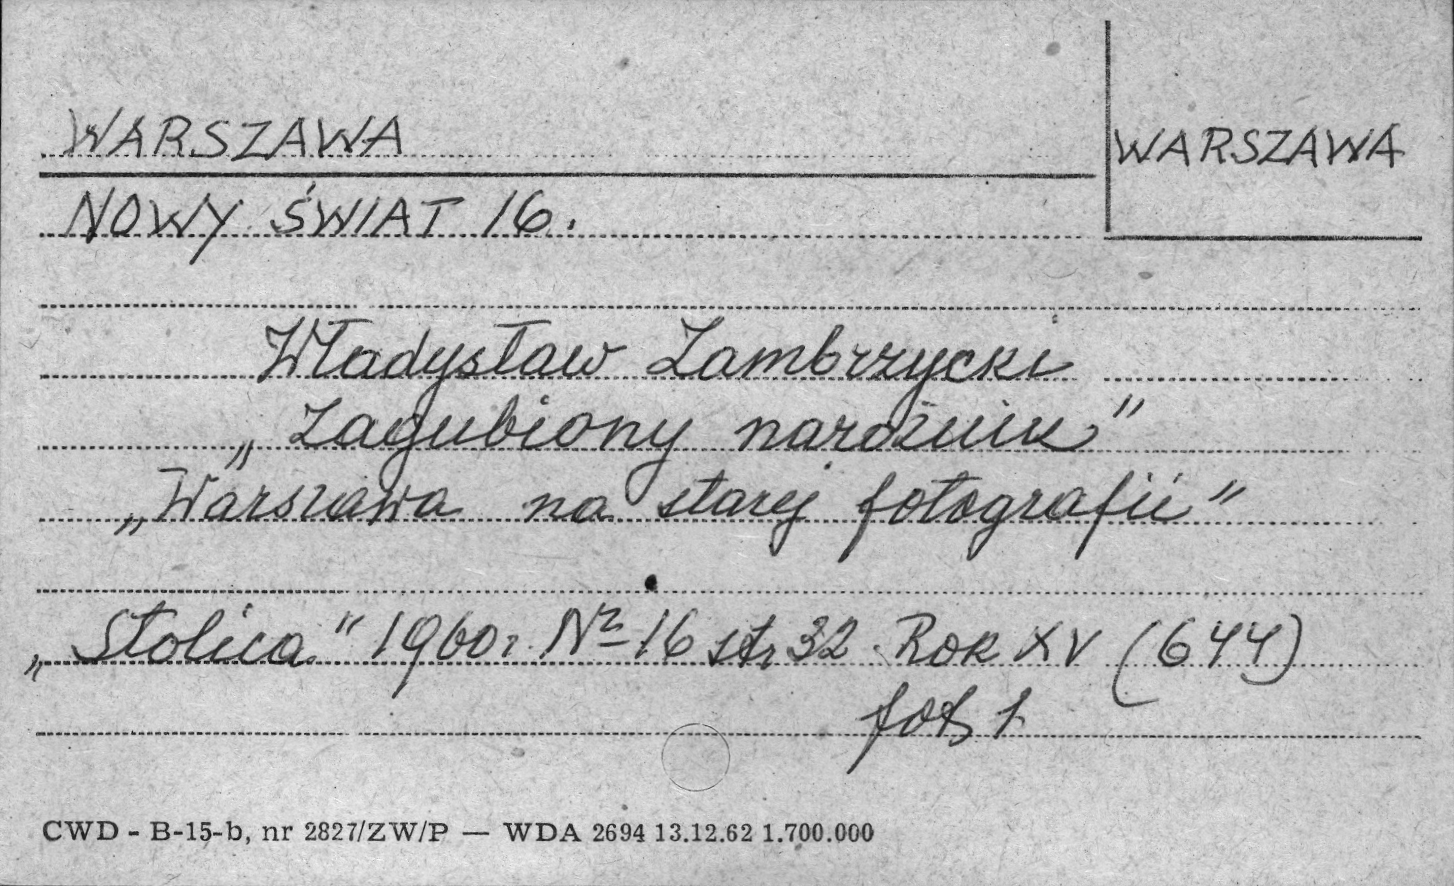 WARSZAWA
WARSZAWA
NOWY ŚWIAT 16.
Władysław Zambrzycki
„Zagubiony narożnik"
„Warszawa na starej fotografii"
„Stolica" 1960r. Nr 16 str 32 Rok XV (644)
fot 1.
CWD - B-15-b, nr 2827/ZW/P — WDA 2694 13.12.62 1.700.000